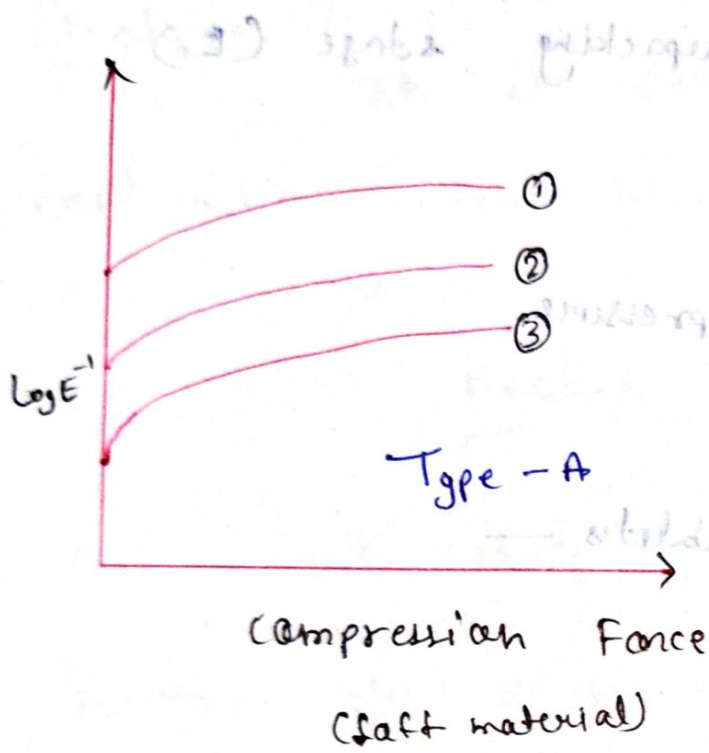 ①
②
③
Log E⁻¹
Type - A
Compression Force
(Saft material)